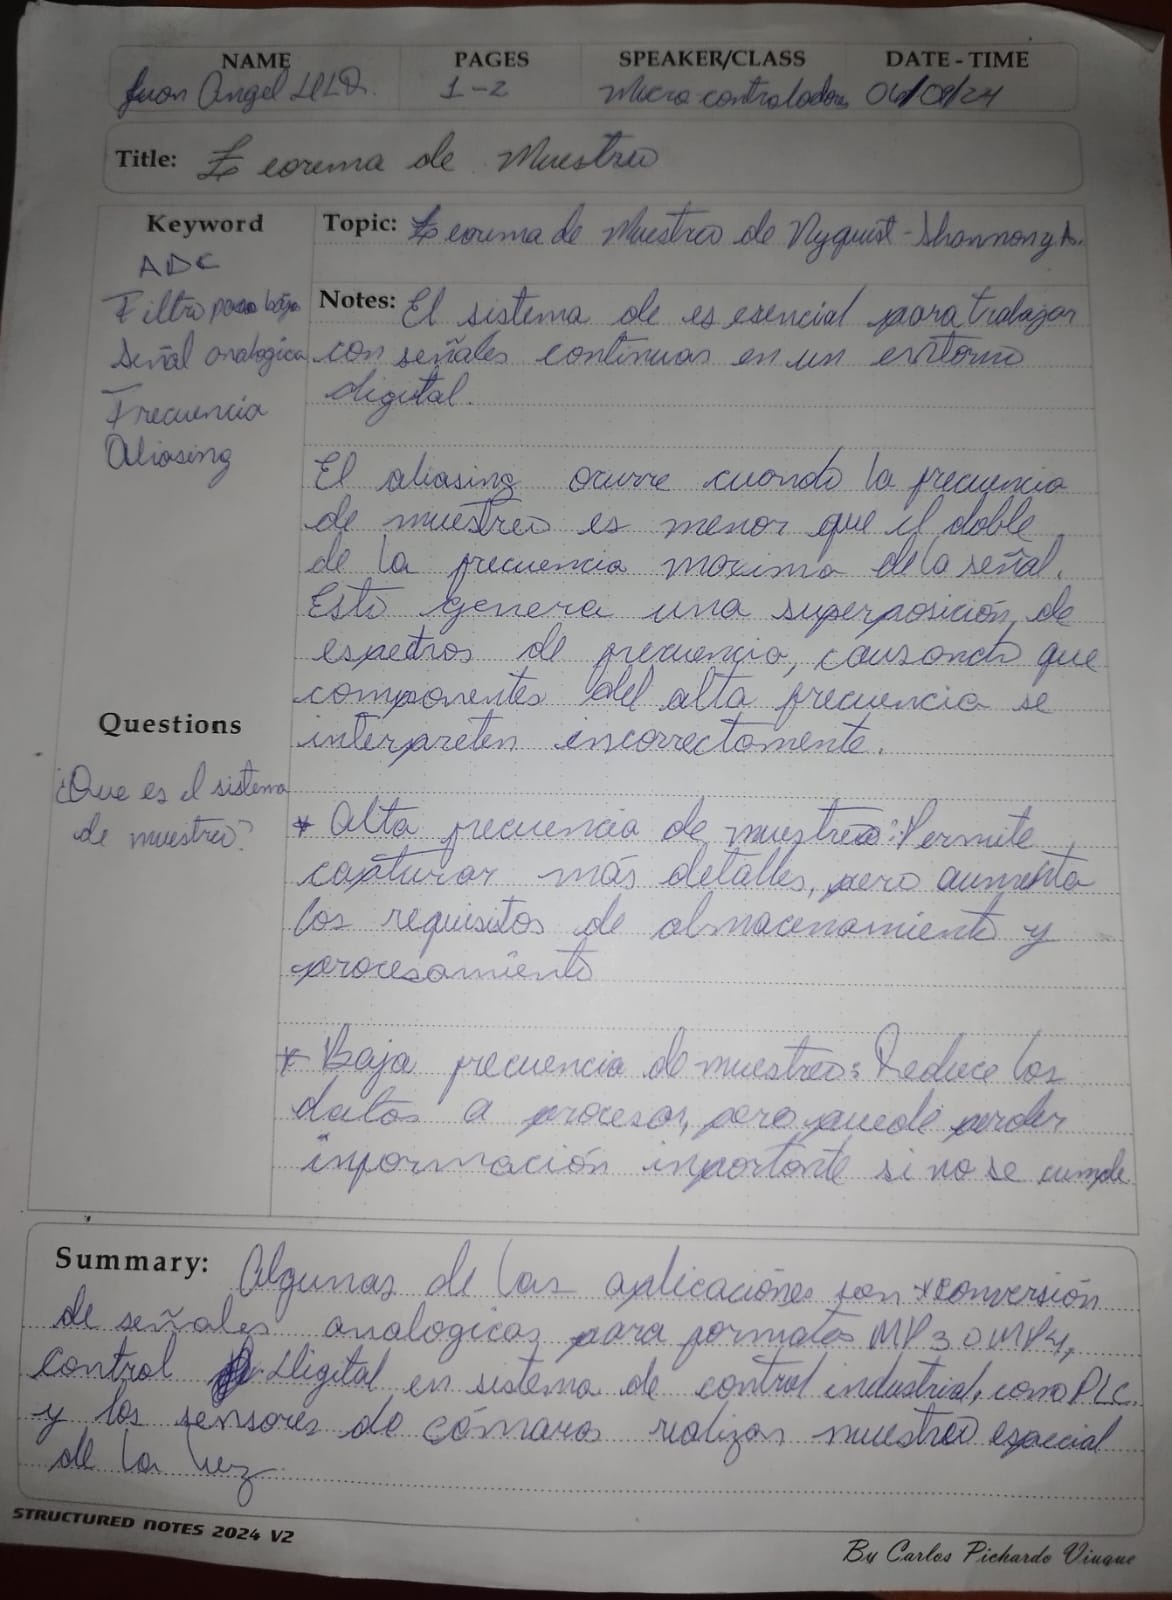 NAME PAGES SPEAKER/CLASS DATE - TIME
Juan Angel 1-2 Micro controladores 04/09/24
Title: Teorema de Muestreo
Keyword
ADC
Filtro paso bajo
Señal analogica
Frecuencia
Aliasing
Topic: Teorema de Muestreo de Nyquist-Shannon y A.
Notes: El sistema de es esencial para trabajar
con señales continuas en un entorno
digital.
El aliasing ocurre cuando la frecuencia
de muestreo es menor que el doble
de la frecuencia maxima de la señal.
Esto genera una superposición de
espectros de frecuencia, causando que
componentes del alta frecuencia se
interpreten incorrectamente.
Questions
¿Que es el sistema
de muestreo?
* Alta frecuencia de muestreo: Permite
capturar más detalles, pero aumenta
los requisitos de almacenamiento y
procesamiento
* Baja frecuencia de muestreo: Reduce los
datos a procesar, pero puede perder
información inportante si no se cumple
Summary: Algunas de las aplicaciónes son *conversión
de señales analogicas para formatos MP3 o MP4,
control Digital en sistema de control industrial, como PLC.
y los sensores de cámaras realizan muestreo especial
de la luz
STRUCTURED NOTES 2024 V2
By Carlos Pichardo Viuque